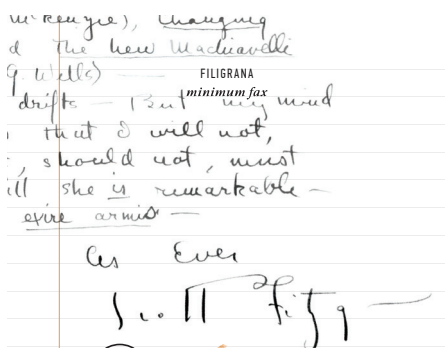 McKenzie), changing
d the new Machiavelli
G. Wells) —
FILIGRANA
minimum fax
drifts — But my mind
that I will not,
, should not, must
ill she is remarkable —
armis —
As Ever
Scott Fitzg